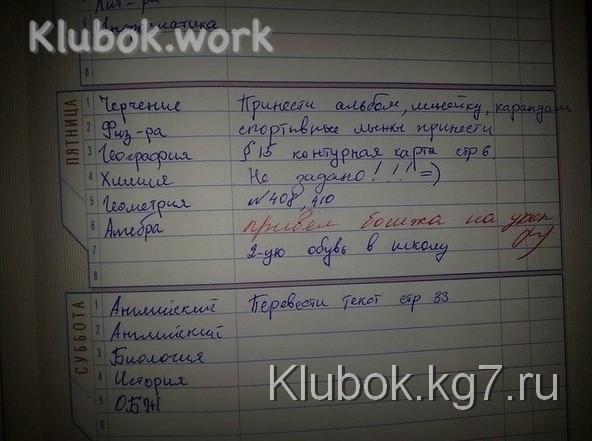 Лит-ра
Klubok.work
6 Информатика
8
ПЯТНИЦА
1 Черчение Принести альбом, линейку, карандаш
2 Физ-ра спортивные лыжы принести
3 География § 15 контурная карта стр 6.
4 Химия Не задано! !!! =)
5 Геометрия №408, 410
6 Алгебра привел бомжа на урок
7 2-ую обувь в школу
8
СУББОТА
1 Английский Перевести текст стр 33
2 Английский
3 Биология
4 История
5 ОБЖ
6
Klubok.kg7.ru